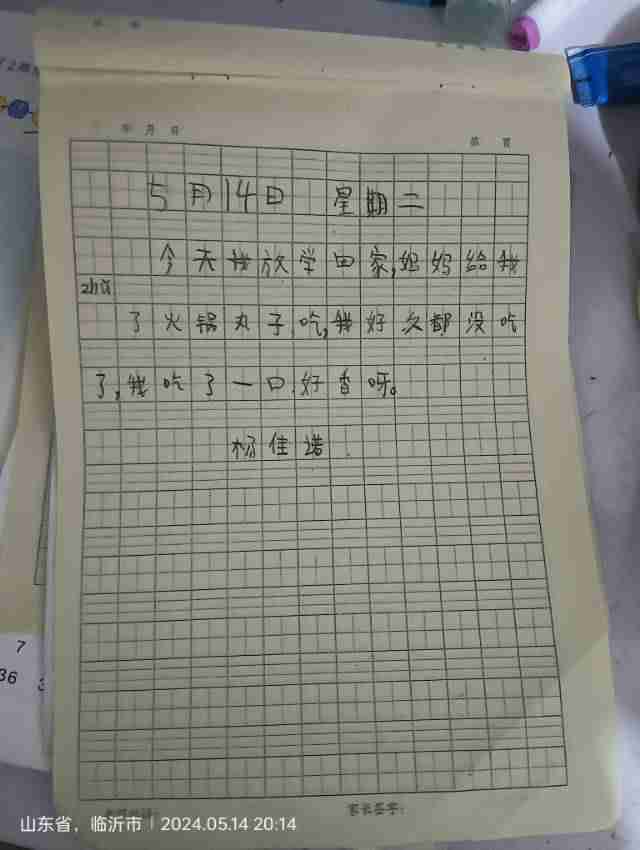 年 月 日
第 页
5月14日 星期二
今天我放学回家,妈妈给我
zhǔ
了火锅丸子吃,我好久都没吃
了,我吃了一口好香呀。
杨佳诺
家长签字:
7
36 3
山东省,临沂市 | 2024.05.14 20:14